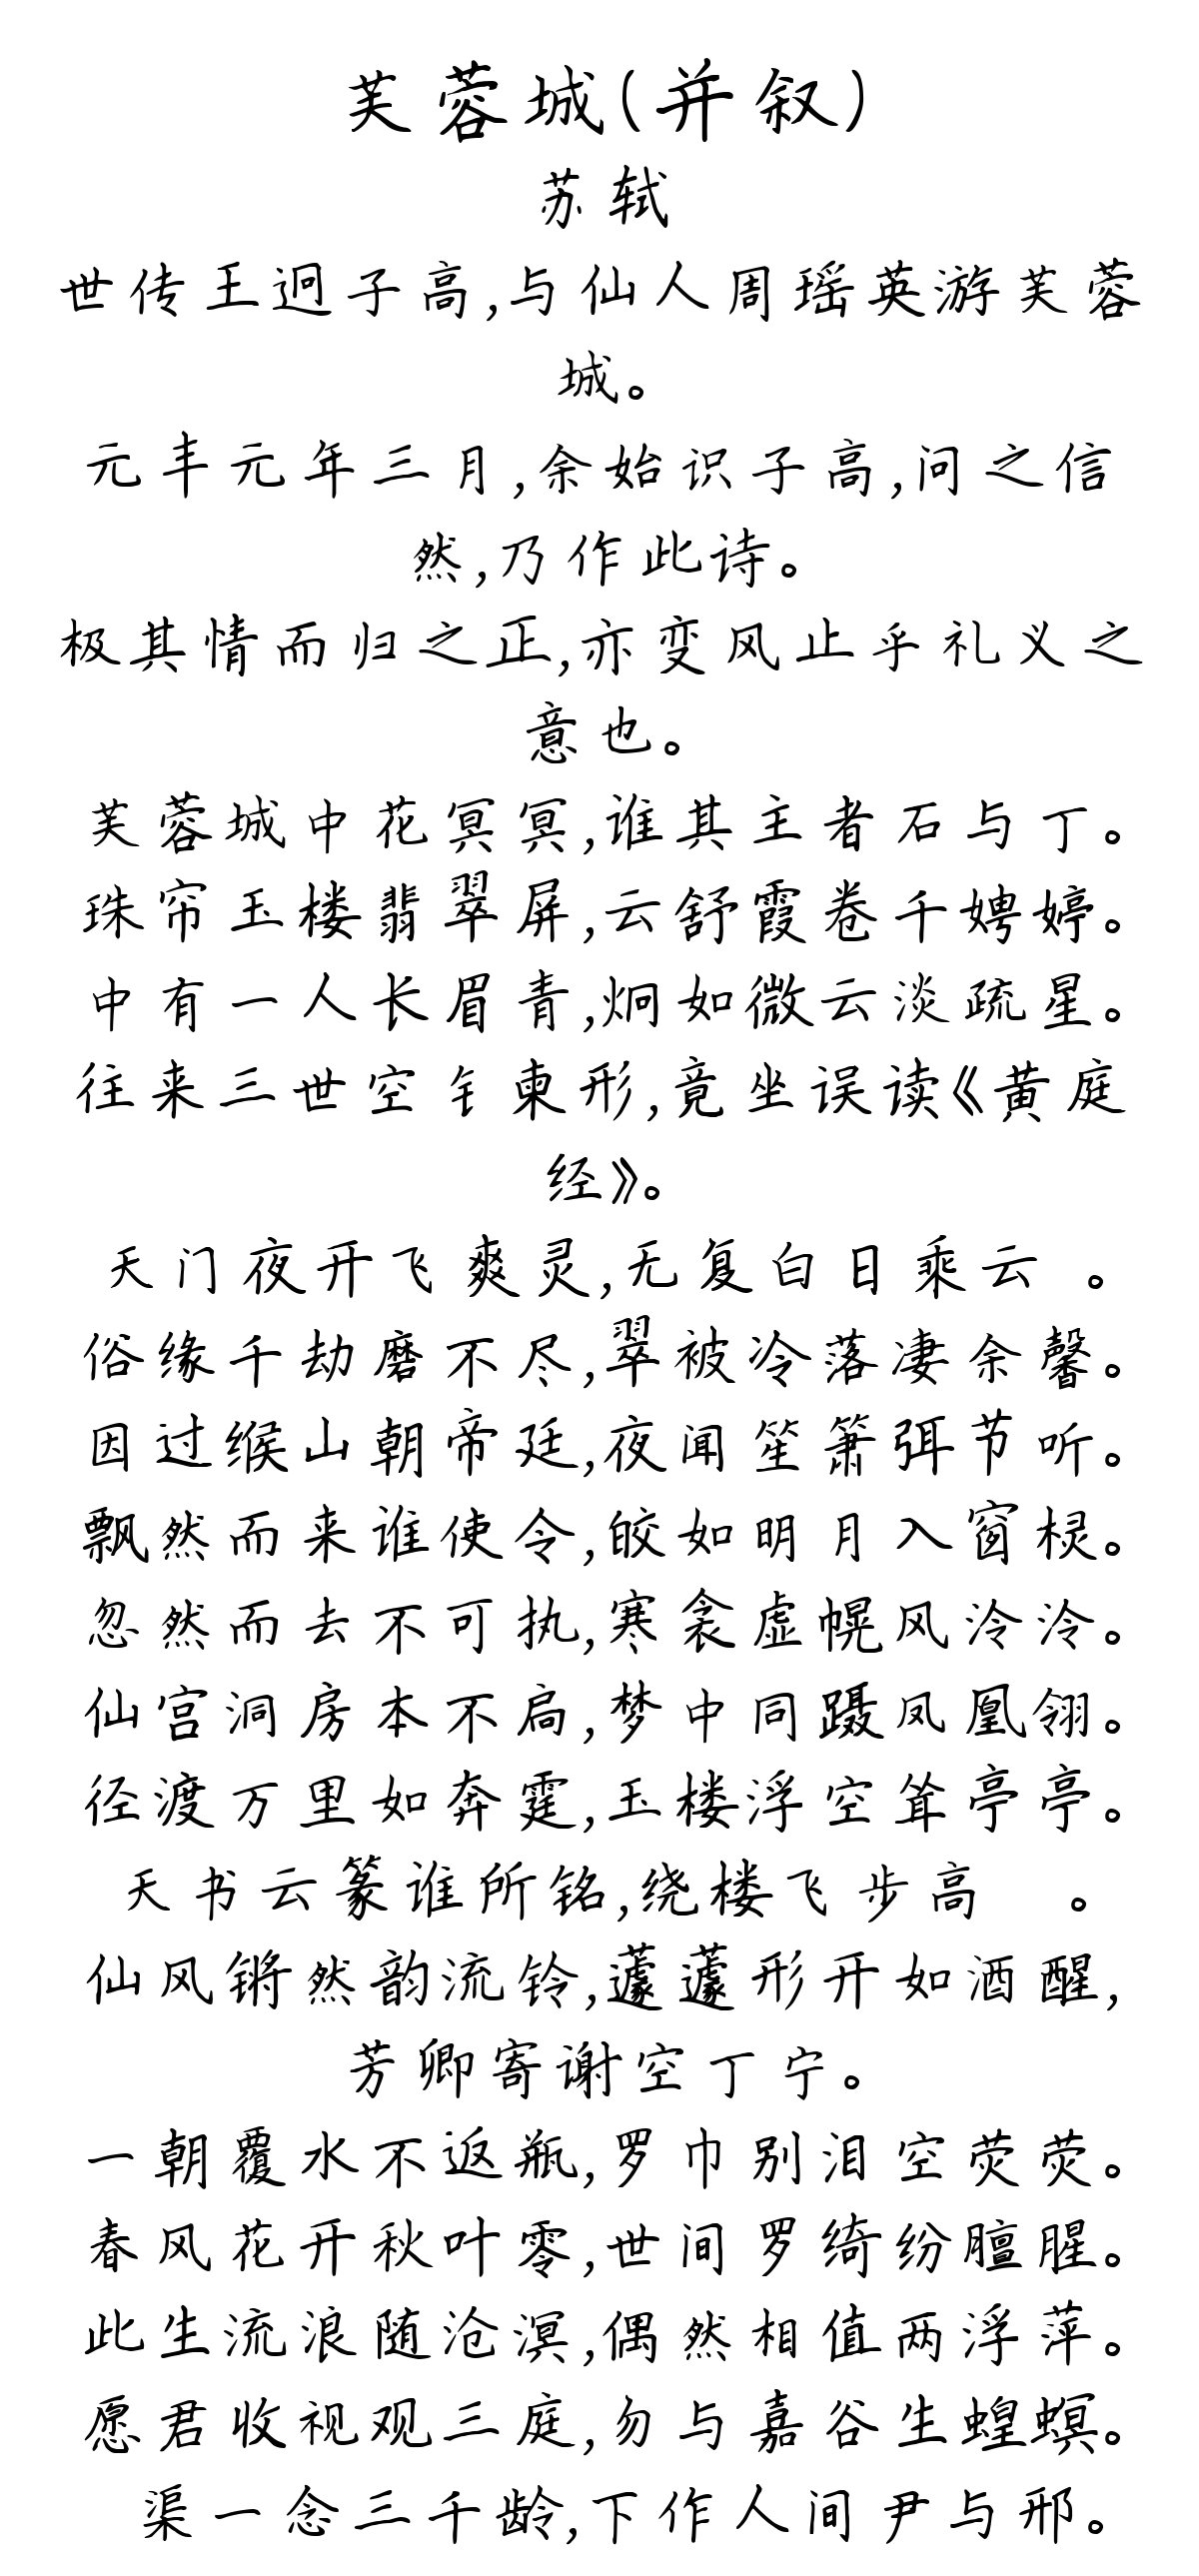 芙蓉城(并叙)
苏轼
世传王迥子高,与仙人周瑶英游芙蓉
城。
元丰元年三月,余始识子高,问之信
然,乃作此诗。
极其情而归之正,亦变风止乎礼义之
意也。
芙蓉城中花冥冥,谁其主者石与丁。
珠帘玉楼翡翠屏,云舒霞卷千娉婷。
中有一人长眉青,炯如微云淡疏星。
往来三世空钅柬形,竟坐误读《黄庭
经》。
天门夜开飞爽灵,无复白日乘云 。
俗缘千劫磨不尽,翠被冷落凄余馨。
因过缑山朝帝廷,夜闻笙箫弭节听。
飘然而来谁使令,皎如明月入窗棂。
忽然而去不可执,寒衾虚幌风泠泠。
仙宫洞房本不扃,梦中同蹑凤凰翎。
径渡万里如奔霆,玉楼浮空耸亭亭。
天书云篆谁所铭,绕楼飞步高 。
仙风锵然韵流铃,蘧蘧形开如酒醒,
芳卿寄谢空丁宁。
一朝覆水不返瓶,罗巾别泪空荧荧。
春风花开秋叶零,世间罗绮纷膻腥。
此生流浪随沧溟,偶然相值两浮萍。
愿君收视观三庭,勿与嘉谷生蝗螟。
渠一念三千龄,下作人间尹与邢。